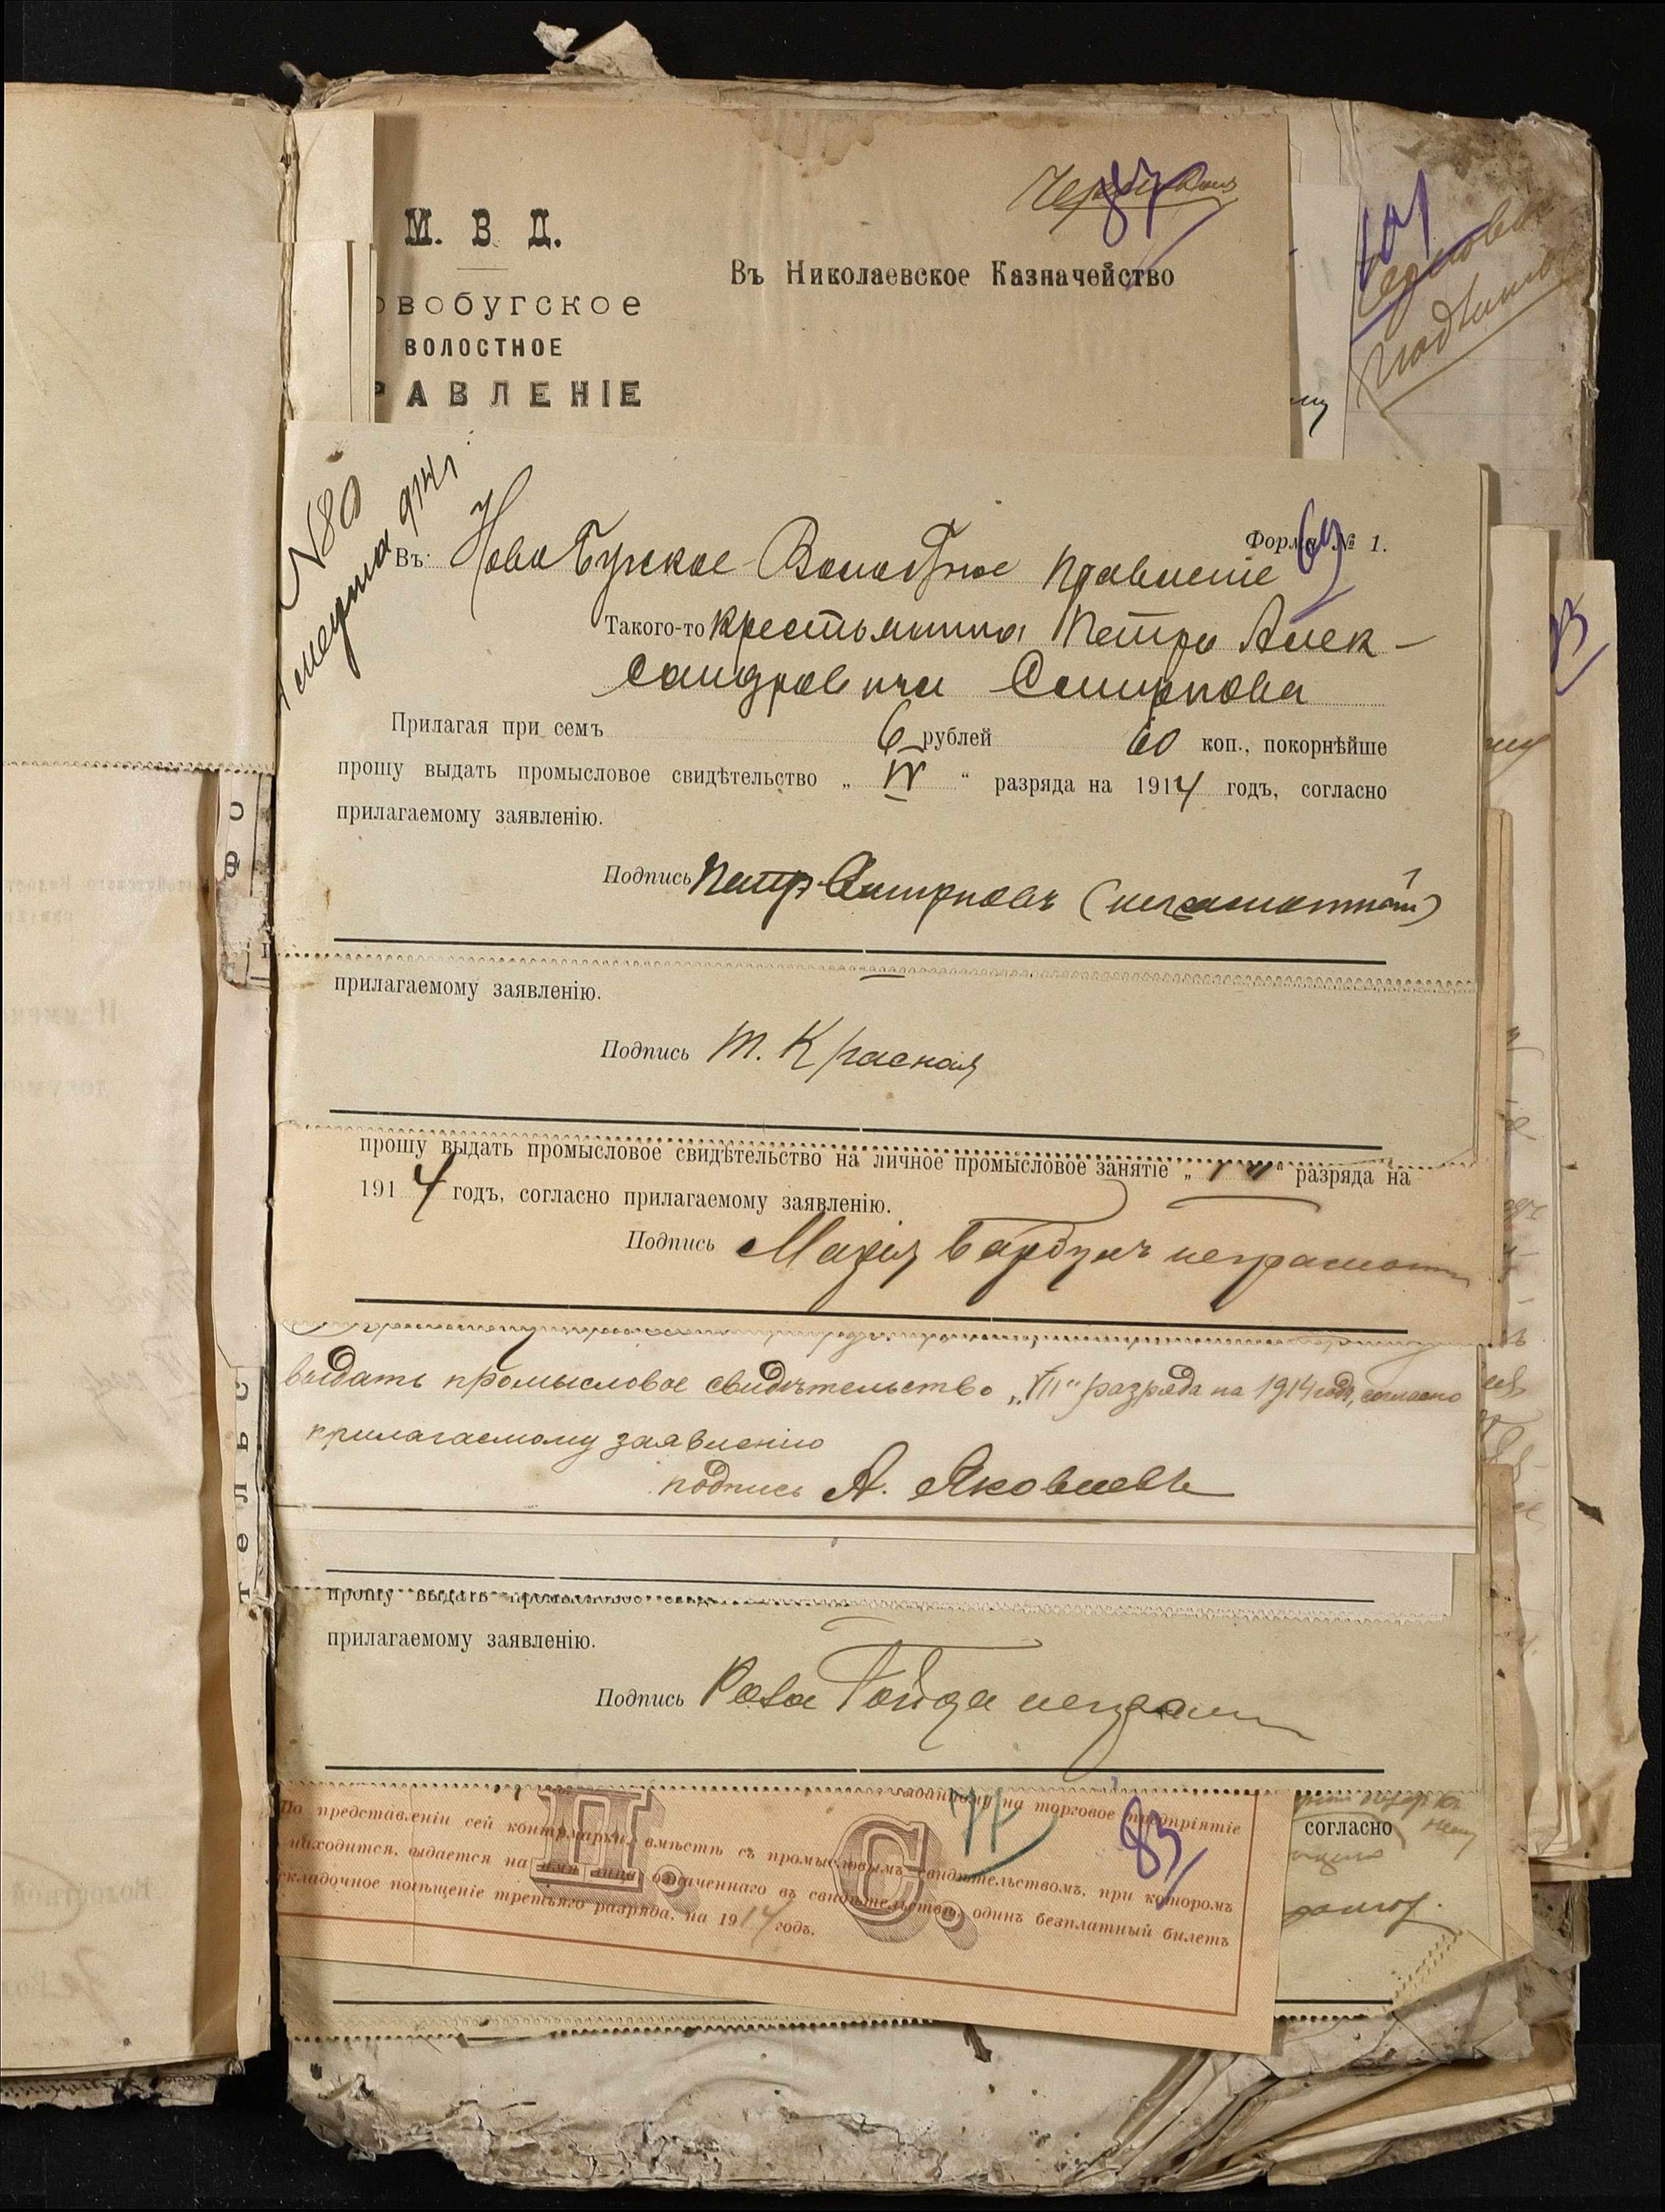 М. В. Д.
овобугское
ВОЛОСТНОЕ
РАВЛЕНІЕ
87
Въ Николаевское Казначейство
N80
914
Форма № 1.
69
Въ Ново Бугское Волостное Правленіе
Такого-то крестьянина Петра Алек-
сандровича Смирнова
Прилагая при семъ 6 рублей 60 коп., покорнѣйше
прошу выдать промысловое свидѣтельство „ IV “ разряда на 1914 годъ, согласно
прилагаемому заявленію.
Подпись Петр Смирновъ (неграмотный)
прилагаемому заявленію.
Подпись М. Красная
прошу выдать промысловое свидѣтельство на личное промысловое занятіе „ “ разряда на
1914 годъ, согласно прилагаемому заявленію.
Подпись Марія неграмотн
выдать промысловое свидѣтельство „III“ разряда на 1914 годъ, согласно
прилагаемому заявленію
подпись А. Яковлевъ
прошу выдать промысловое
прилагаемому заявленію.
Подпись Роза Гойда неграм
на торговое предпріятіе
По представленіи сей контрмарки, вмѣстѣ съ промысловымъ свидѣтельствомъ, при которомъ
находится, выдается на имя лица, означеннаго въ свидѣтельствѣ, одинъ безплатный билетъ
складочное помѣщеніе третьяго разряда, на 1914 годъ.
П. С.
77
83
согласно
83
ФО
тельс